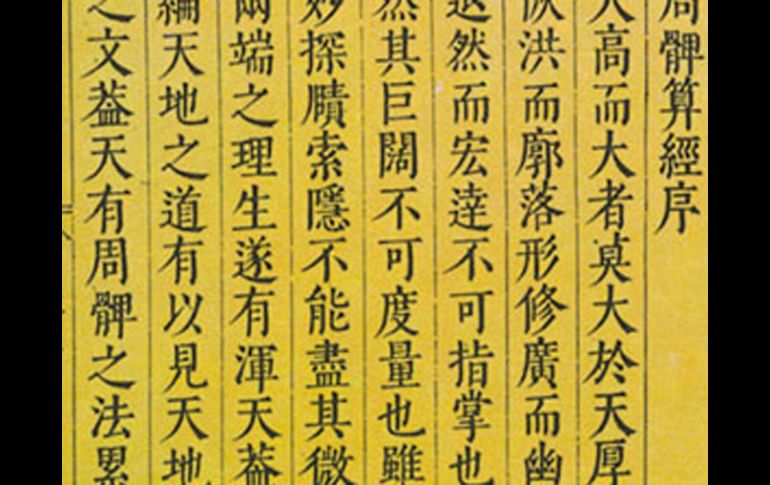 周髀算經序
夫高而大者莫大於天厚
恢洪而廓落形修廣而幽
退然而宏逹不可指掌也
然其巨闊不可度量也雖
妙探賾索隱不能盡其微
兩端之理生遂有渾天葢
綸天地之道有以見天地
之文葢天有周髀之法累